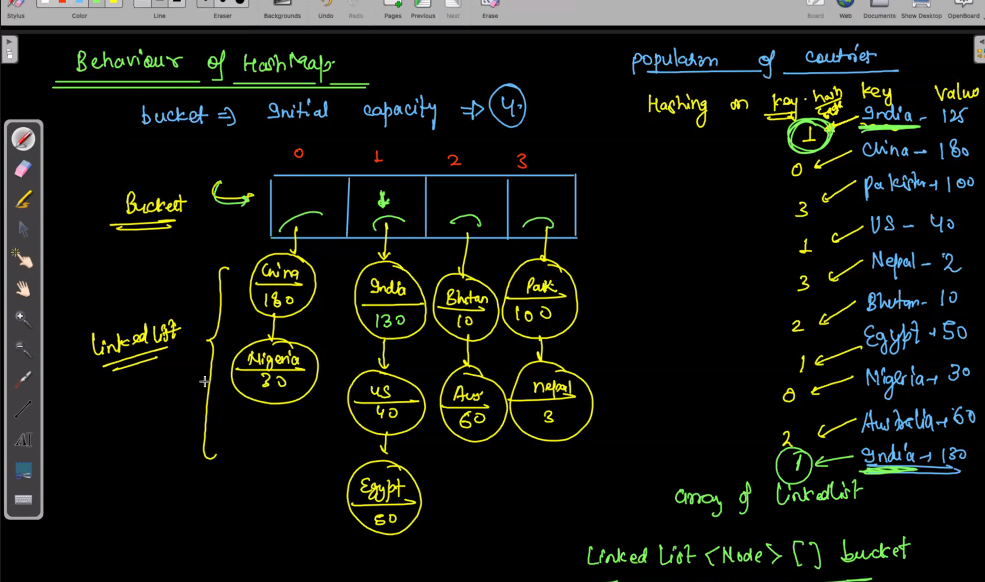 Stylus
Color
Line
Eraser
Backgrounds
Undo
Redo
Pages
Previous
Next
Erase
Board
Web
Documents
Show Desktop
OpenBoard
Behaviour of HashMap
bucket => Initial capacity => 4
0 1 2 3
Bucket
China
180
India
130
Bhutan
10
Pak
100
Linked List
Nigeria
30
US
40
Aus
60
Nepal
3
Egypt
50
population of countries
Hashing on key.hash code
key Value
1 India - 125
0 China - 180
3 Pakistan - 100
1 US - 40
3 Nepal - 2
2 Bhutan - 10
1 Egypt - 50
0 Nigeria - 30
2 Australia - 60
1 India - 130
array of LinkedList
Linked List <Node> [] bucket